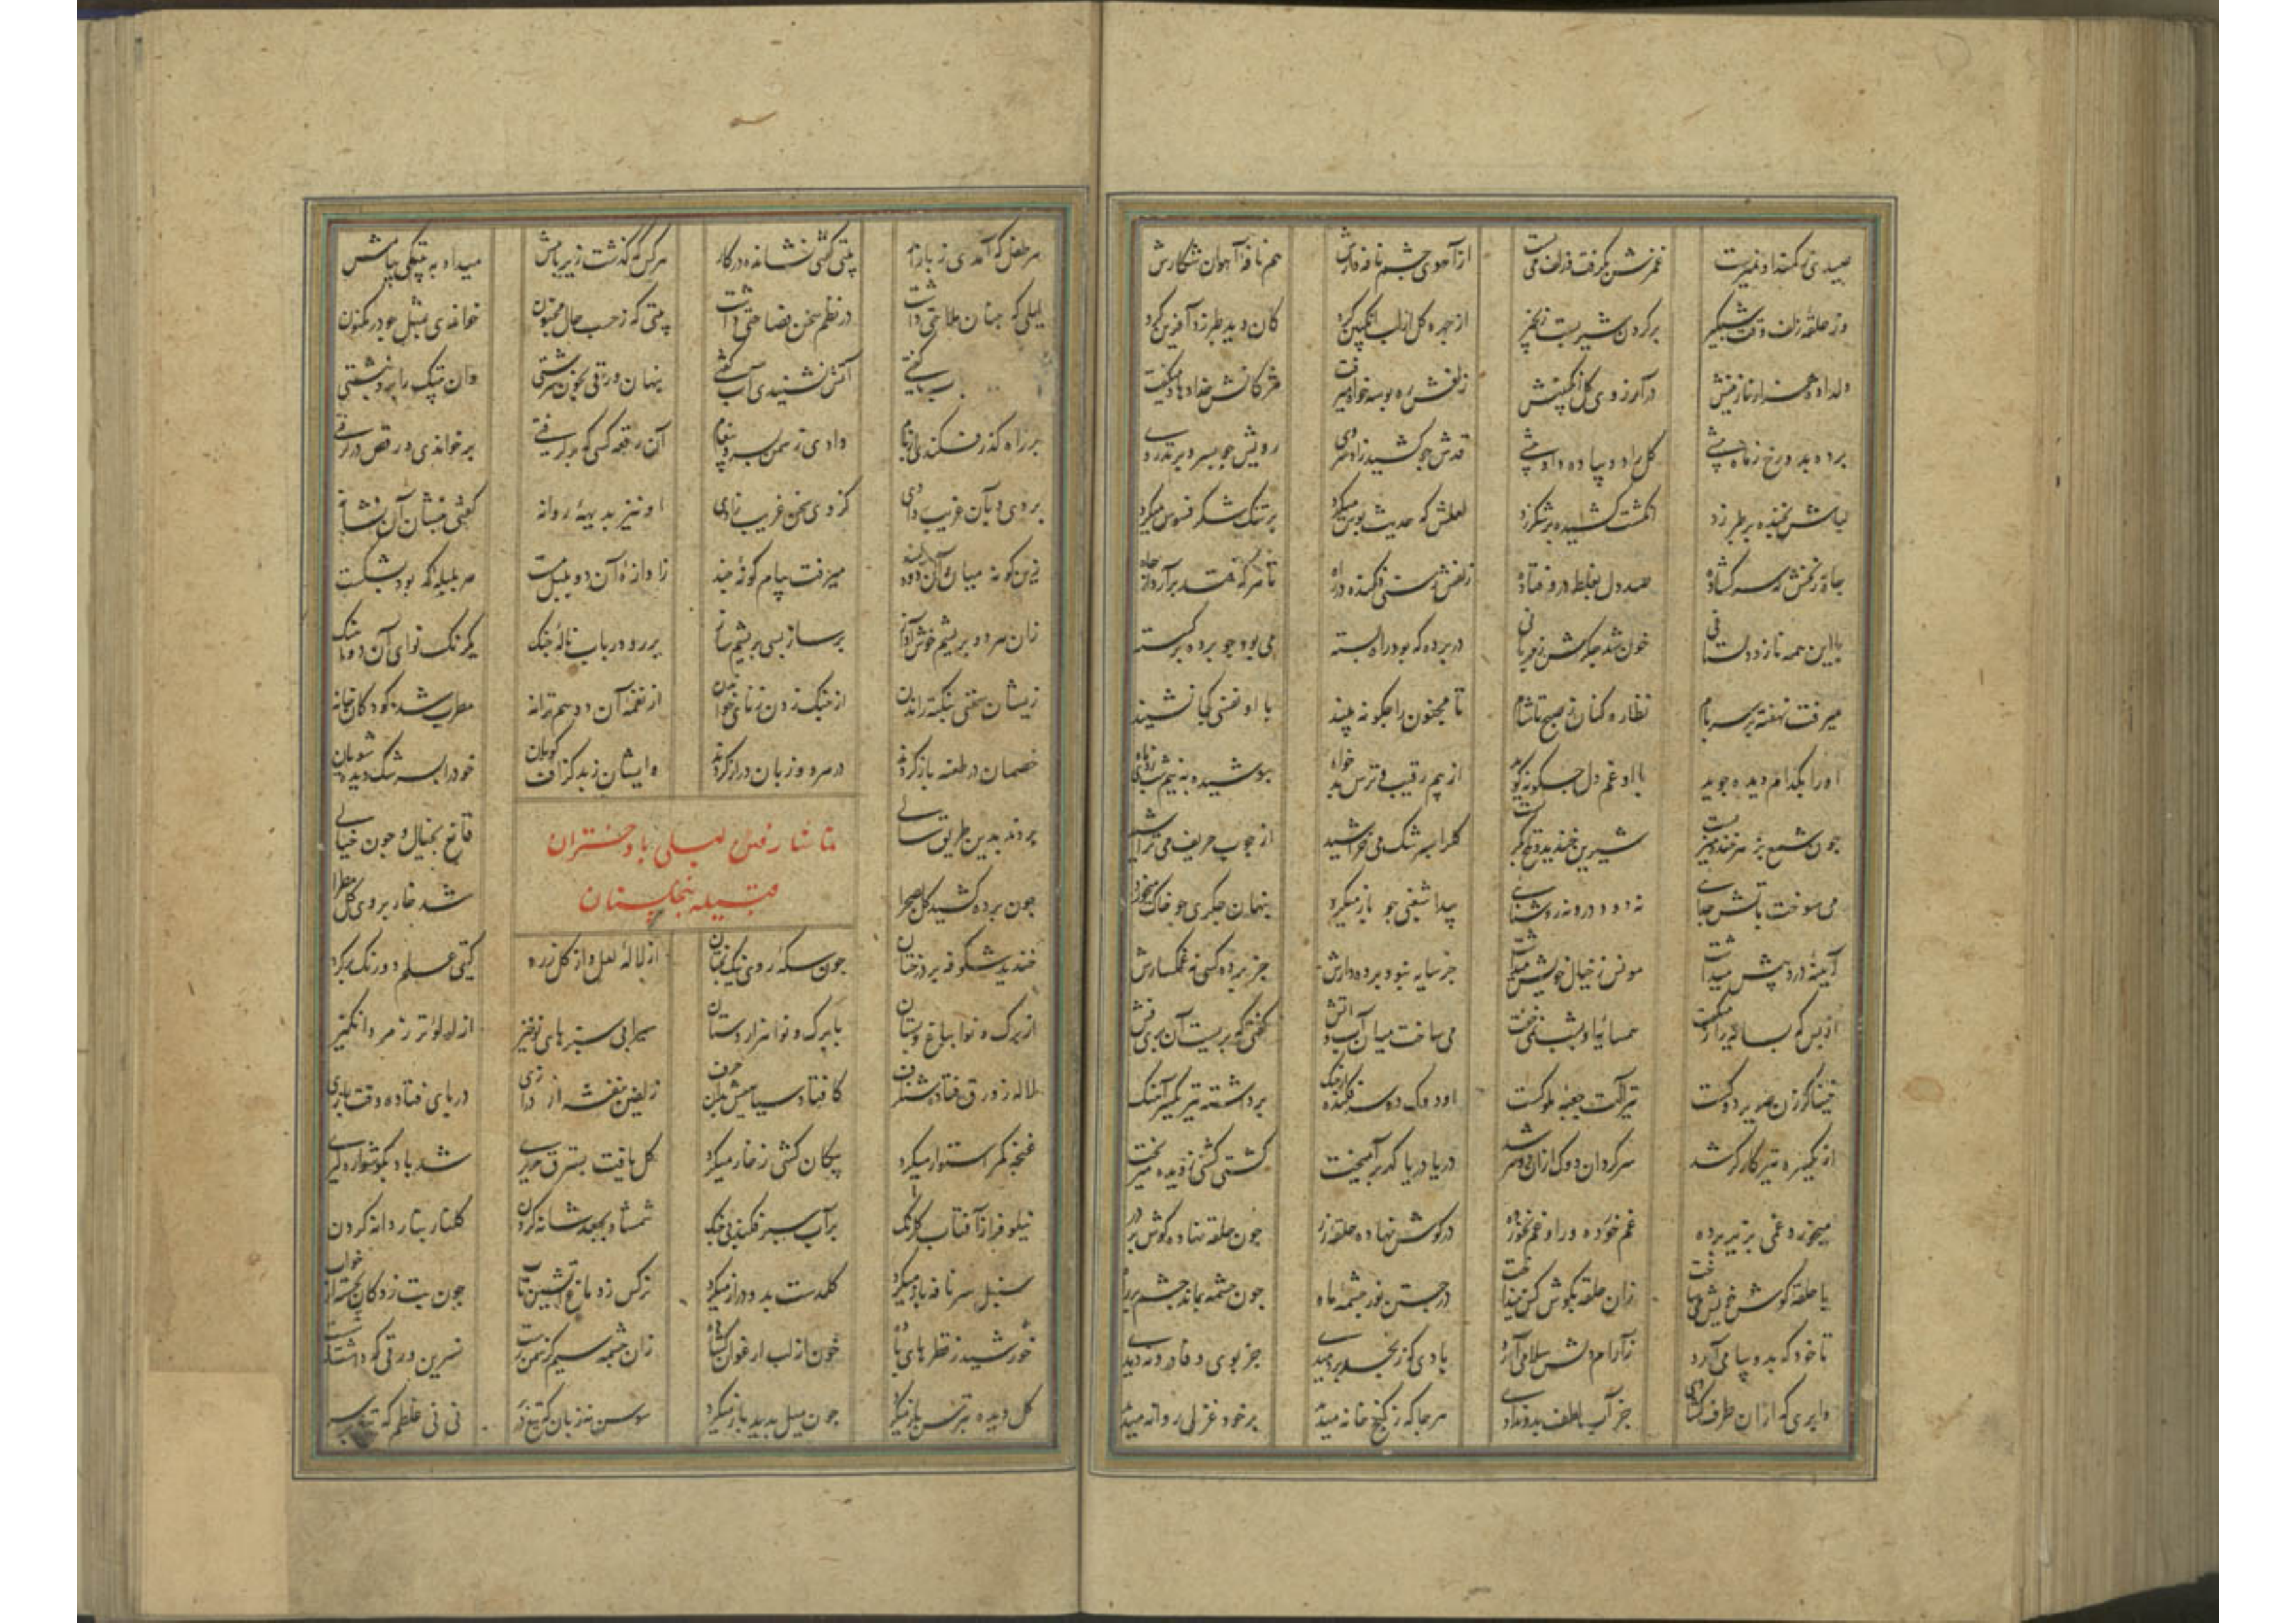 صیدی نه کمند او نمیرست غمزش بگرفت و زلف می بست از آهوی چشم نافه دارش هم نافه آهوان شکارش
وز حلقه زلف وقت نخچیر بر گردن شیر بست زنجیر از چهره گل از لب انگبین کرد کان دید طبرزد آفرین کرد
دلداده هزار نازنینش در آرزوی گل انگبینش زلفش ره بوسه خواه میرفت مژگانش خدا دهاد میگفت
برده بدو رخ ز ماه پیشی گل را دو پیاده داد پیشی قدش چو کشیده زاد سروی رویش چو بسرو بر تذروی
لبهاش بخنده بر طبرزد انگشت کشیده بر شکر زد لعلش که حدیث بوس میکرد بر تنگ شکر فسوس میکرد
چاه زنخش که سر گشاده صد دل بغلط درو فتاده زلفش رسنی فکنده در راه تا هر که فتد برآرد از چاه
با این همه ناز و دلستانی خون شد جگرش ز مهربانی در پرده که بود راه بسته می بود چو پرده بر گسسته
میرفت نهفته بر سر بام نظاره کنان ز صبح تا شام تا مجنون را چگونه بیند با او نفسی کجا نشیند
او را بکدام دیده جوید با او غم دل چگونه گوید از بیم رقیب و ترس بدخواه پوشیده به نیم شب زدی آه
چون شمع بزهر خنده میزیست شیرین خندید و تلخ بگریست گل را بسرشک می خراشید از چوب حریف می تراشید
می سوخت بآتش جدایی نه دود درو نه روشنایی پیدا شغبی چو باد میکرد پنهان جگری چو خاک میخورد
آیینه درد پیش میداشت مونس ز خیال خویش میداشت جز سایه نبود پرده دارش جز پرده کسی نه غمگسارش
از بس که بسایه راز میگفت همسایه او بشب نمی خفت می ساخت میان آب و آتش گفتی که پریست آن پریوش
خنیاگر زن صریر دوکست تیر آلت جعبه ملوکست او دوک دو سر فکنده از چنگ برداشته تیر یکسر آهنگ
از یکسره تیر کارگر شد سرگردان دوک از آن دو سر شد دریا دریا گهر برآمیخت کشتی کشتی ز دیده میریخت
میخورد غمی بزیر پرده غم خورده ورا و غم نخورده در گوش نهاده حلقه زر چون حلقه نهاده گوش بر در
با حلقه گوش خویش میساخت زان حلقه بگوش کس نینداخت در جستن نور چشمه ماه چون چشمه بمانده چشم بر راه
تا خود که بدو پیامی آرد ز آرام دلش سلامی آرد بادی که ز نجد بردمیدی جز بوی وفا درو ندیدی
وابری که از آن طرف گشادی جز آب لطف بدو ندادی هر جا که ز کنج خانه میدید بر خود غزلی روانه میدید
هر طفل که آمدی ز بازار بیتی گفتی نشانده در کار هر کس که گذشت زیر بامش میداد به بیتکی پیامش
لیلی که چنان ملاحتی داشت در نظم سخن فصاحتی داشت بیتی که ز حسب حال مجنون خواندی بمثل چو در مکنون
آتش نشنیدی آب گفتی پنهان ورقی بخون سرشتی وان بیتک را برو نبشتی
بر راه گذر فکندی از بام دادی ز سمن بسرو پیغام آن رقعه کسی که برگرفتی برخواندی و رقص درگرفتی
بردی و بآن غریب دادی کز وی سخن غریب زادی او نیز بدیهه روانه گفتی بنشان آن نشانه
زین گونه میان آن دو دلبند میرفت پیام گونه چند ز آوازه آن دو بلبل مست هر بلبله که بود بشکست
زان هر دو بریشم خوش آواز بر ساز بسی بریشم ساز بر رود و رباب و ناله چنگ یکرنگ نوای آن دو آهنگ
زیشان سخنی بنکته راندن از چنگ زدن ز نای خواندن از نغمه آن دو هم ترانه مطرب شده کودکان خانه
خصمان در طعنه باز کردند در هر دو زبان دراز کردند وایشان ز بد گزاف گویان خود را بسرشک دیده شویان
بودند بدین طریق سالی قانع بخیال و چون خیالی
تماشا رفتن لیلی با دختران
قبیله بنخلستان
چون پرده کشید گل بصحرا شد خاک بروی گل مطرا
خندید شکوفه بر درختان چون سکه روی نیکبختان از لاله لعل و از گل زرد گیتی علم دو رنگ برکرد
از برگ و نوا بباغ و بستان با برگ و نوا هزار دستان سیرابی سبزهای نوخیز از لولو تر زمرد انگیز
لاله ز ورق فشانده شنگرف کافتاده سیاهیش بران حرف زلفین بنفشه از درازی در پای فتاده وقت بازی
غنچه کمر استوار میکرد پیکان کشی ز خار میکرد گل یافت ستبرق حریری شد باد بگوشواره گیری
نیلوفر از آفتاب گلرنگ بر آب سپر فکند بی جنگ شمشاد بجعد شانه کردن گلنار بنار دانه کردن
سنبل سر نافه باز میکرد گل دست بدو دراز میکرد نرگس ز دماغ آتشین تاب چون تب زدگان بجسته از خواب
خورشید ز قطرهای باده خون از لب ارغوان گشاده زان چشمه سیم کز سمن رست نسرین ورقی که داشت میشست
گل دیده ببوس باز میکرد چون مثل بدید باز میکرد سوسن نه زبان که تیغ در نی نی غلطم که تیغ بر سر